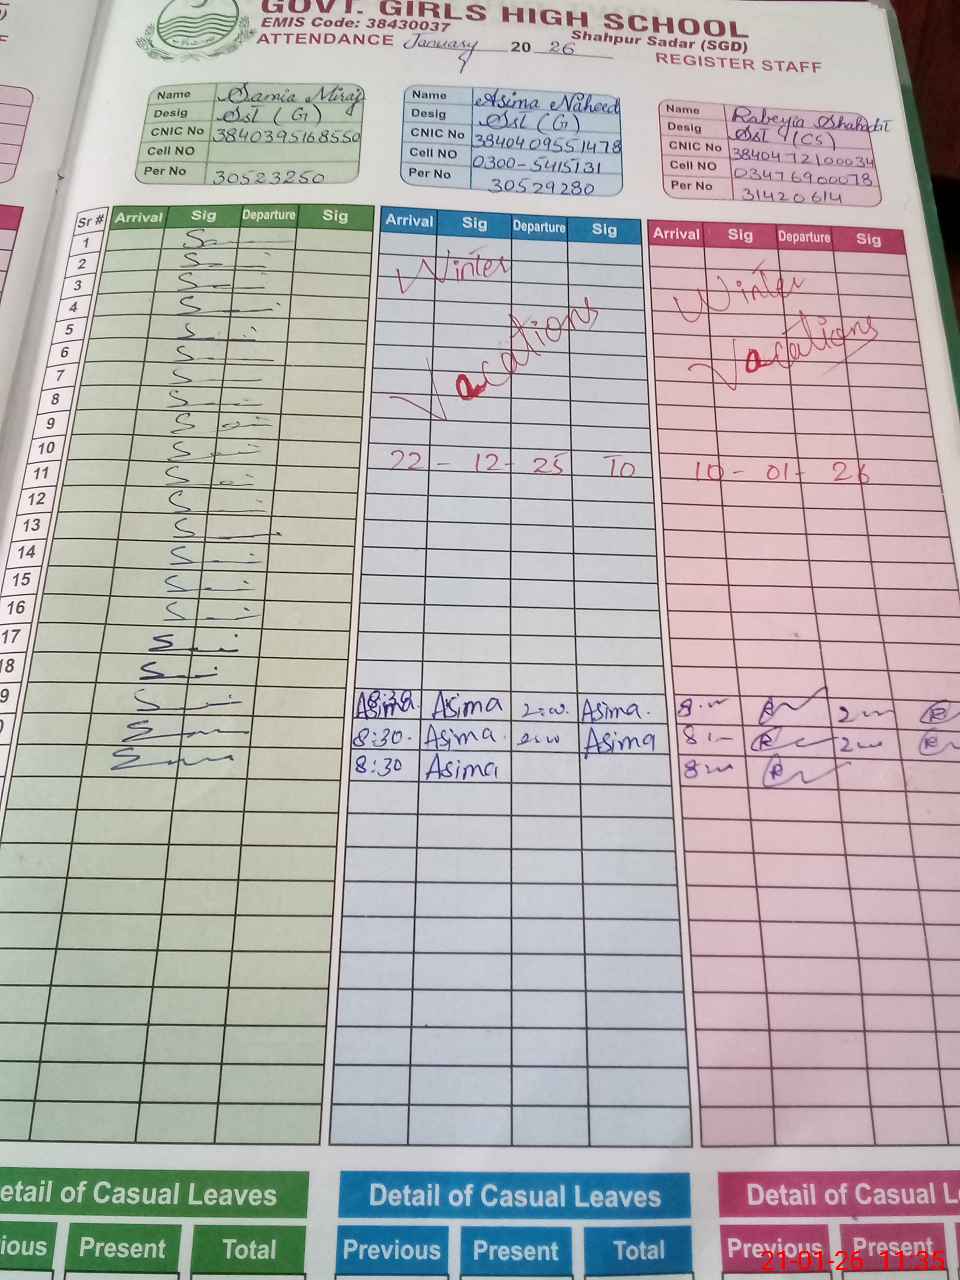 GOVT. GIRLS HIGH SCHOOL
EMIS Code: 38430037
Shahpur Sadar (SGD)
ATTENDANCE January 2026
REGISTER STAFF
Name Samia Miraj
Desig SSt (G)
CNIC No 3840395168550
Cell NO
Per No 30523250
Name Asima Naheed
Desig SSt (G)
CNIC No 3840409551478
Cell NO 0300-5415131
Per No 30529280
Name Rabeyia
Desig SSt (CS)
CNIC No 3840472100034
Cell NO 03476900078
Per No 31420614
Sr # Arrival Sig Departure Sig Arrival Sig Departure Sig Arrival Sig Departure Sig
1
2
3
4
5
6
7
8
9
10
11
12
13
14
15
16
17
18
Winter
Vacations
Winter
Vacations
22 - 12 - 25 To 10 - 01 - 26
8:30 Asima Asima
8:30 Asima Asima
8:30 Asima
etail of Casual Leaves
ious Present Total
Detail of Casual Leaves
Previous Present Total
Detail of Casual L
Previous Present
21-01-26 11:35